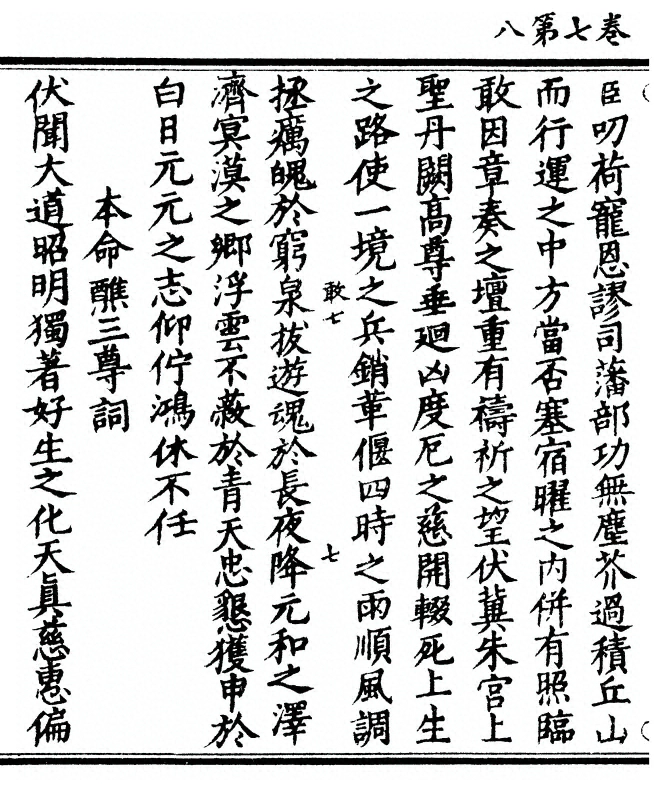 卷七第八
臣叨荷寵恩謬司藩部功無塵芥過積丘山
而行運之中方當否塞宿曜之內併有照臨
敢因章奏之壇重有禱祈之望伏冀朱宮上
聖丹闕高尊垂迴凶度厄之慈開輟死上生
之路使一境之兵銷革偃四時之雨順風調
敢七
七
拯癘魄於窮泉拔遊魂於長夜降元和之澤
濟冥漠之鄉浮雲不蔽於青天忠懇獲申於
白日元元之志仰佇鴻休不任
本命醮三尊詞
伏聞大道昭明獨著好生之化天眞慈惠偏